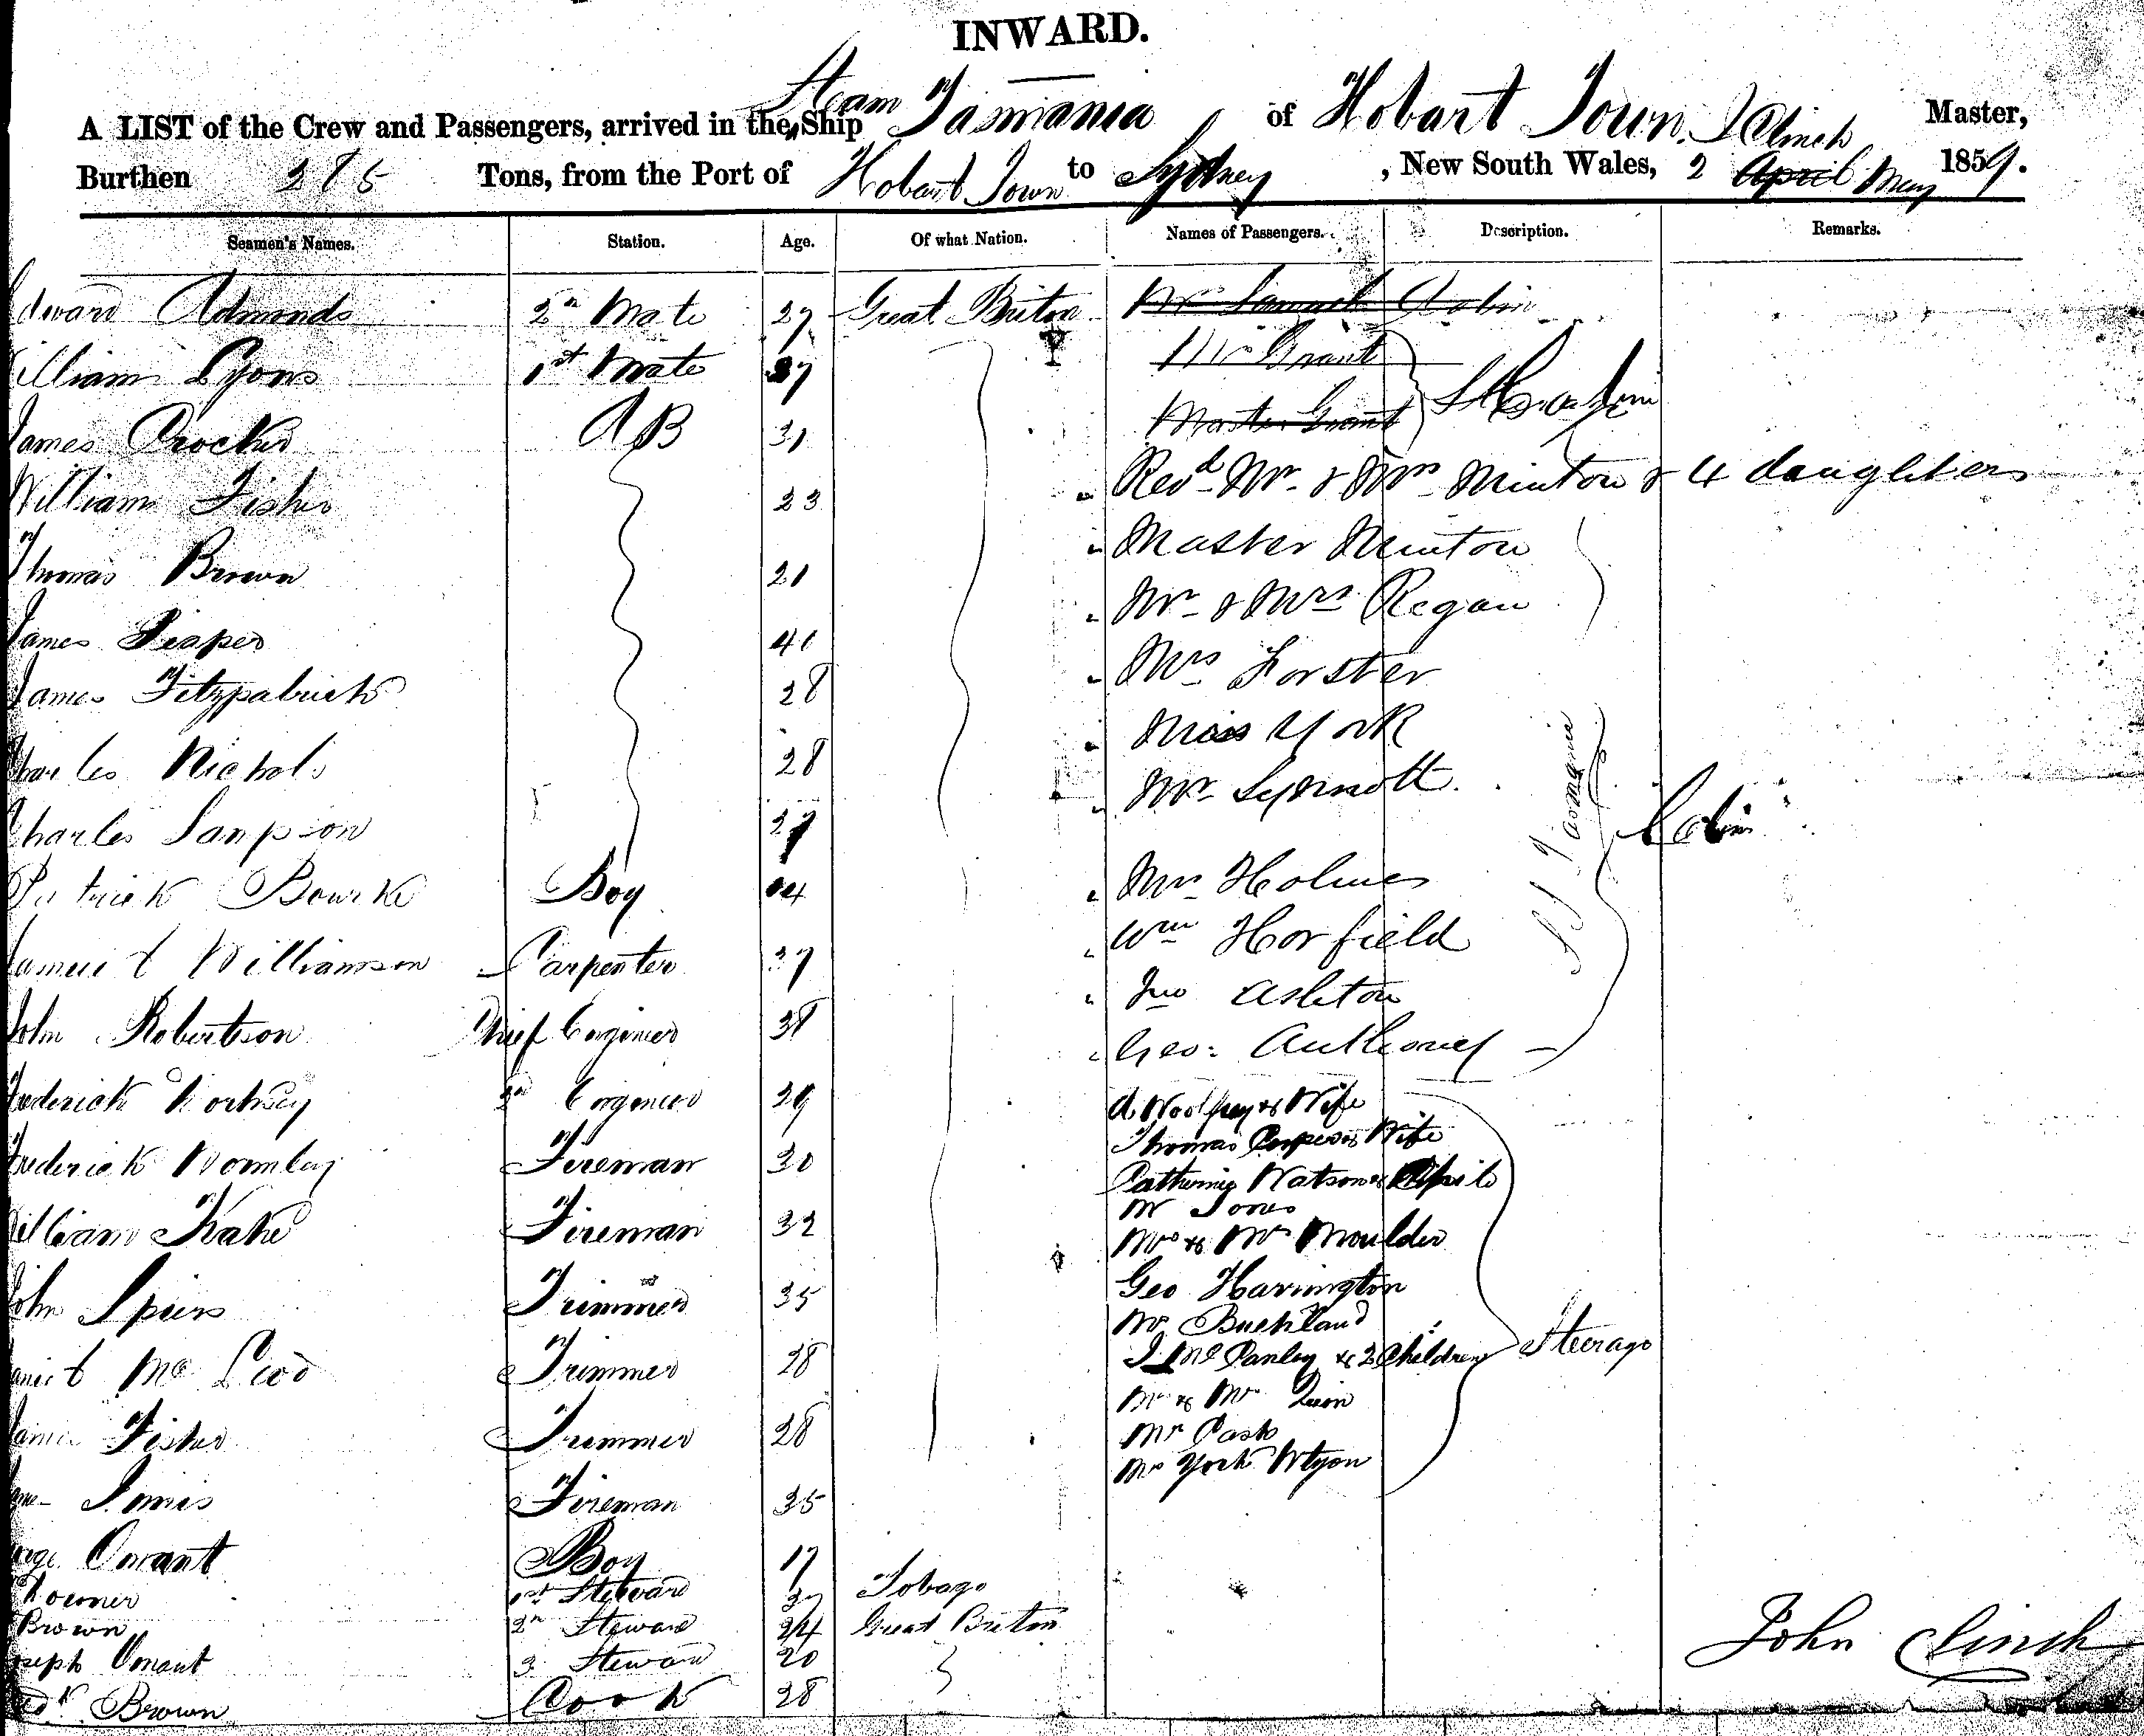 INWARD.
A LIST of the Crew and Passengers, arrived in the Steam Ship Tasmania of Hobart Town. J Clinch Master,
Burthen 275 Tons, from the Port of Hobart Town to Sydney, New South Wales, 2 April May 1859.
Seamen's Names. Station. Age. Of what Nation. Names of Passengers. Description. Remarks.
Edward Edmonds 2nd Mate 27 Great Briton
William Lyons 1st Mate 37 Mrs Grant
James Crocker AB 31 Master Grant
William Fisher 23 Revd Mr & Mrs Minton & 4 daughters
Thomas Brown 21 Master Minton
James 41 Mr & Mrs Regan
James Fitzpatrick 28 Mrs Forster
Charles Nichols 28 Miss York
Charles Sampson 27 Mr Synnott. SS Tasmania Cabin
Patrick Bourke Boy 14 Mr Holmes
Samuel Williamson Carpenter 37 Wm Horfield
John Robertson Chief Engineer 38 Jno Ashton
Geo: Anthoney
Frederick 2n Engineer 29 A Woolfrey & Wife
Thomas Cooper & Wife
Frederick Wormley Fireman 30 Catherine Watson &
Mr Jones
William Kake Fireman 32 Mrs & Mr Moulder
Geo Harrington
John Spiers Trimmer 35 Mr Buckland
J McCanley & 2 Children Steerage
Daniel McLeod Trimmer 28 Mr & Mrs Quin
James Fisher Trimmer 28 Mr Cash
Mr York
Fireman 35
George Omant Boy 17
1st Steward Tobago
Brown 2n Steward 24 Great Briton
Joseph Omant 3 Steward 20
John Clinch
Fredk Brown Cook 28